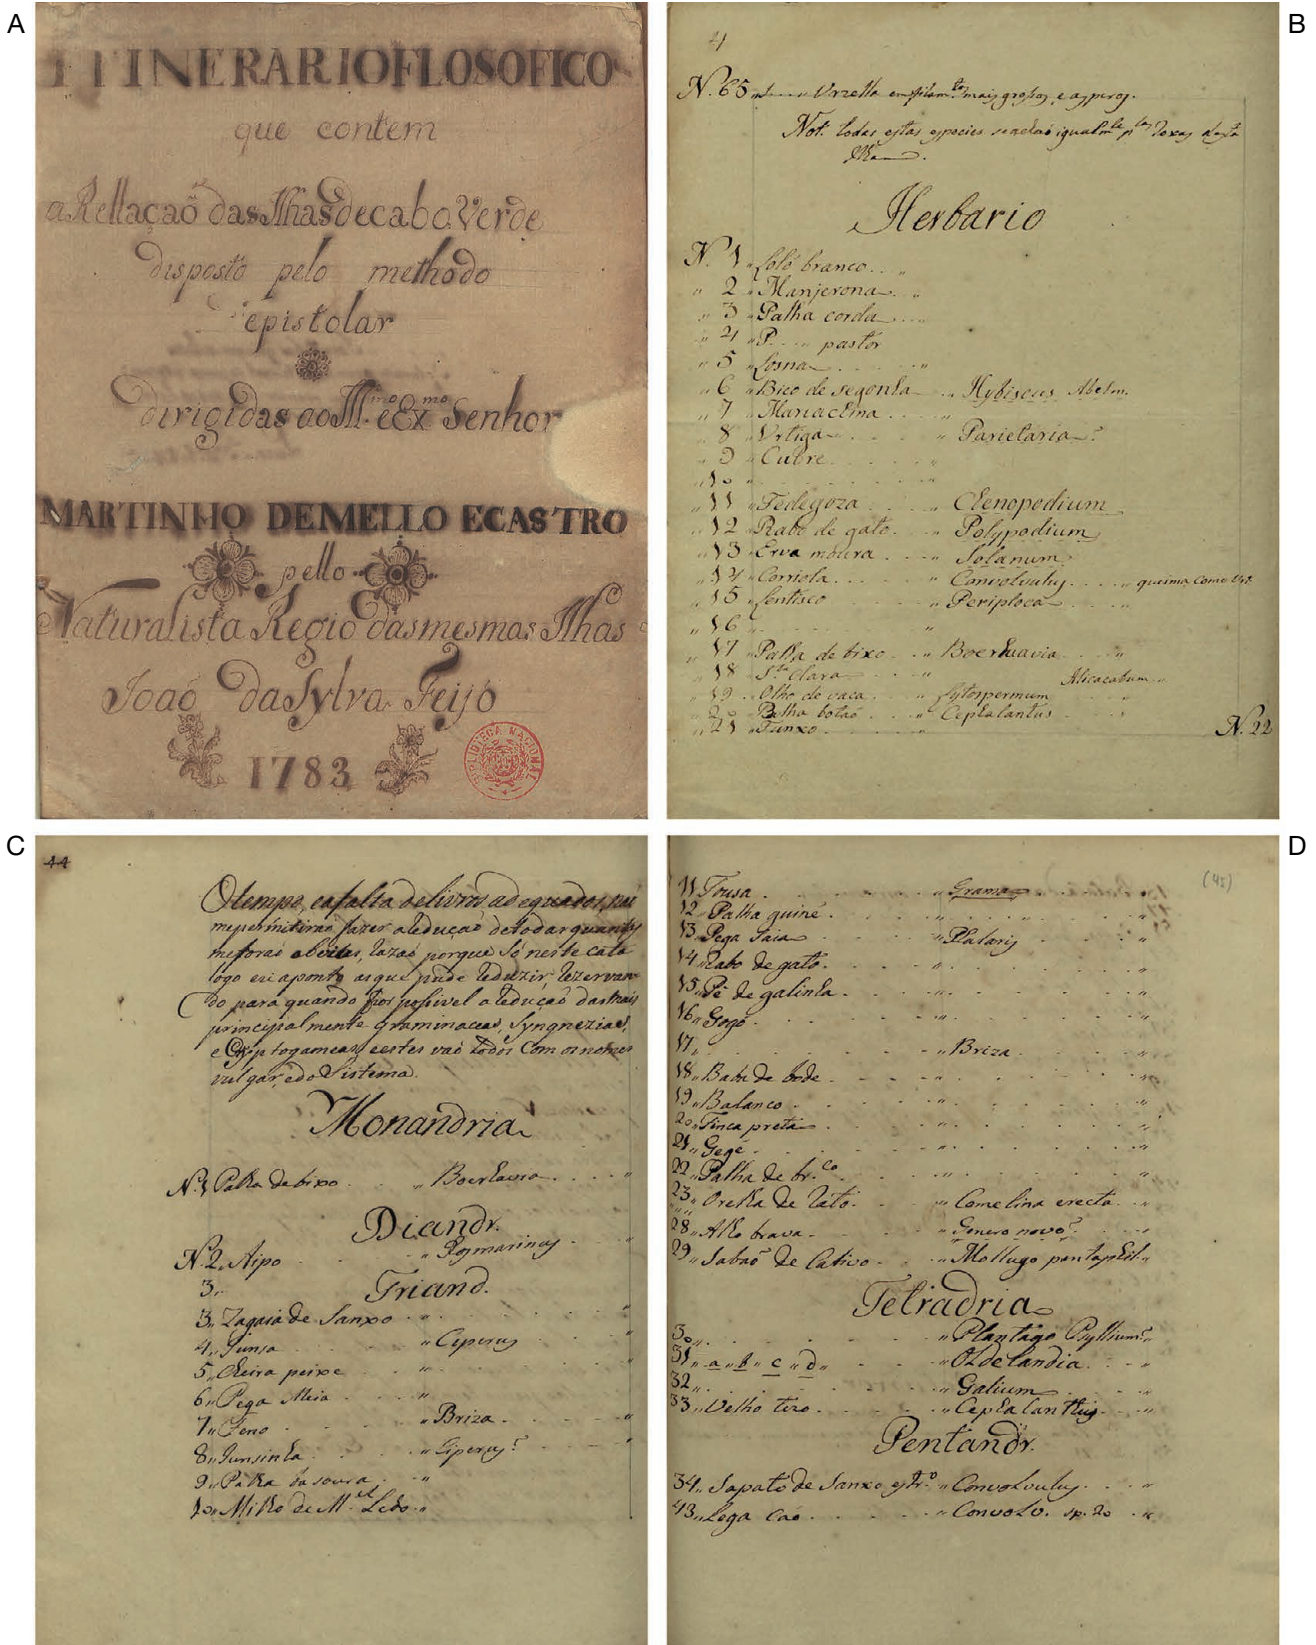 A
ITINERARIOFLOSOFICO
que contem
a Rellaçaõ das Ilhas de cabo Verde
disposto pelo methodo
epistolar
dirigidas ao Ill.mo e Ex.mo Senhor
MARTINHO DEMELLO ECASTRO
pello
Naturalista Regio das mesmas Ilhas
Joaõ da Sylva Feijó
1783
BIBLIOTECA NACIONAL
B
4
N. 65 Urzella em filam.tos mais grossos, e asperos.
Not. todas estas especies se achaõ igualm.te p.las Roxas desta
Ilha
Herbario
N. 1 Loló branco
2 Manjerona
3 Palha corda
4 P. pastor
5 Losna
6 Bico de segonha Hybiscus Abelm.
7
8 Urtiga Parietaria?
9 Cubre
10
11 Fedegoza Chenopodium
12 Rabo de gato Polypodium
13 Erva moura Solanum
14 Corriola Convolvulus queima como Urt.
15 Lentisco Periploca
16
17 Palha de bixo Boerhavia
18 S.ta Clara Alicacabum
19 Olho de vaca Lytospermum
20 Palha botaõ Cephalantus
21 Funxo
N. 22
C
44
O tempo, e a falta de livros adequados, naõ
me permitiraõ fazer a reduçaõ de todas quantas
me foraõ a bistas, razaõ porque só neste cata
logo eu aponto as que pude reduzir, rezervan
do para quando fos posivel a reduçaõ das mais
principalmente graminaceas, Syngnezias,
e Cryptogameas, e estes vaõ todos com os nomes
vulgar, e do Sistema.
Monandria
N. 1 Palha de bixo Boerhavia
Diandr.
N. 2 Aipo Rosmarinus
3
Triand.
3 Zagaia de Sanxo
4 Junsa Ciperus
5 Cheira peixe
6 Pega Meia
7 Feno Briza
8 Junsinha Ciperus?
9 Palha basoura
10 Milho de M.el Lobo
D
(45)
11 Tousa Grama
12 Palha guiné
13 Pega Saia Phalaris
14 Rabo de gato
15 Pé de galinha
16 Gogó
17 Briza
18 Barba de bode
19 Balanco
20 Finca preta
21 Gegé
22 Palha de br.co
23 Orelha de Rato Comelina erecta
28 Alho bravo Genero novo?
29 Sabaõ de Cativo Mollugo pentaphil.
Tetradria
30 Plantago Psyllium?
31 a b c d Oldelandia
32 Galium
33 Velho tezo Cephalanthus
Pentandr.
34 Sapato de Sanxo estr.o Convolvulus
43 Lega Caõ Convolv. sp. 20